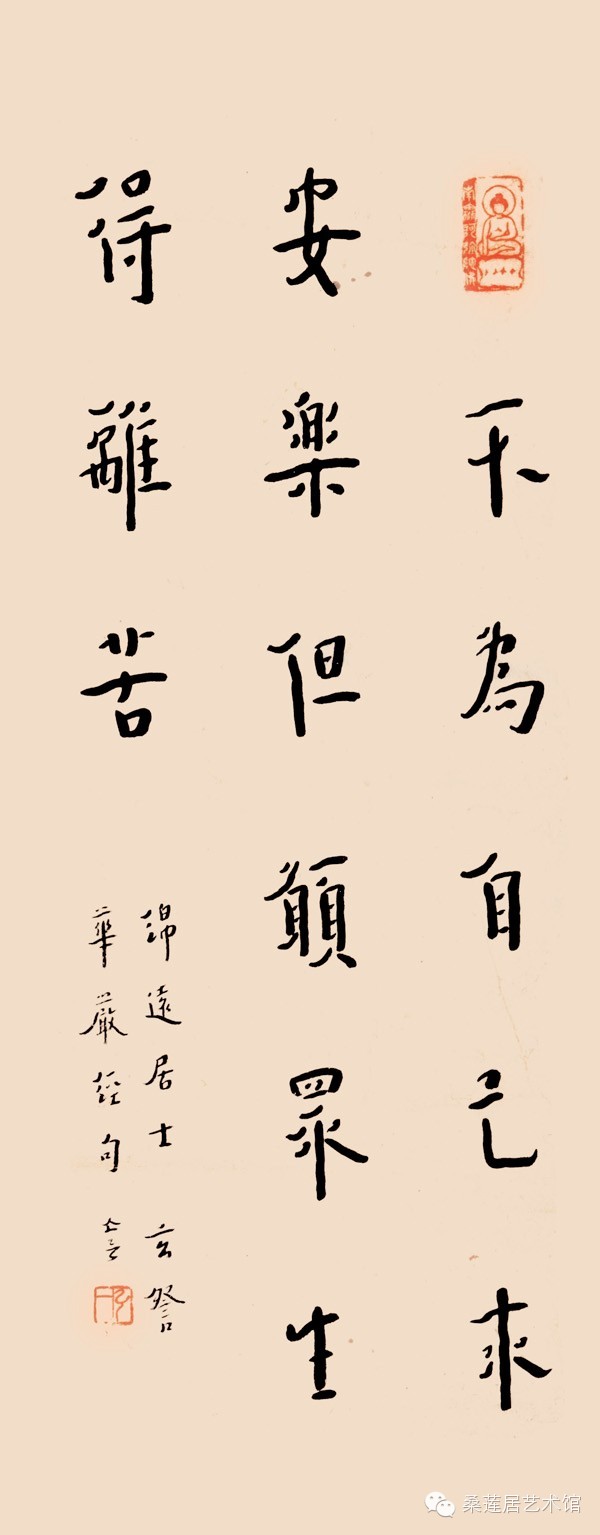 不為自己求
安樂但願眾生
得離苦
遠居士 玄詧
華嚴經句
桑莲居艺术馆